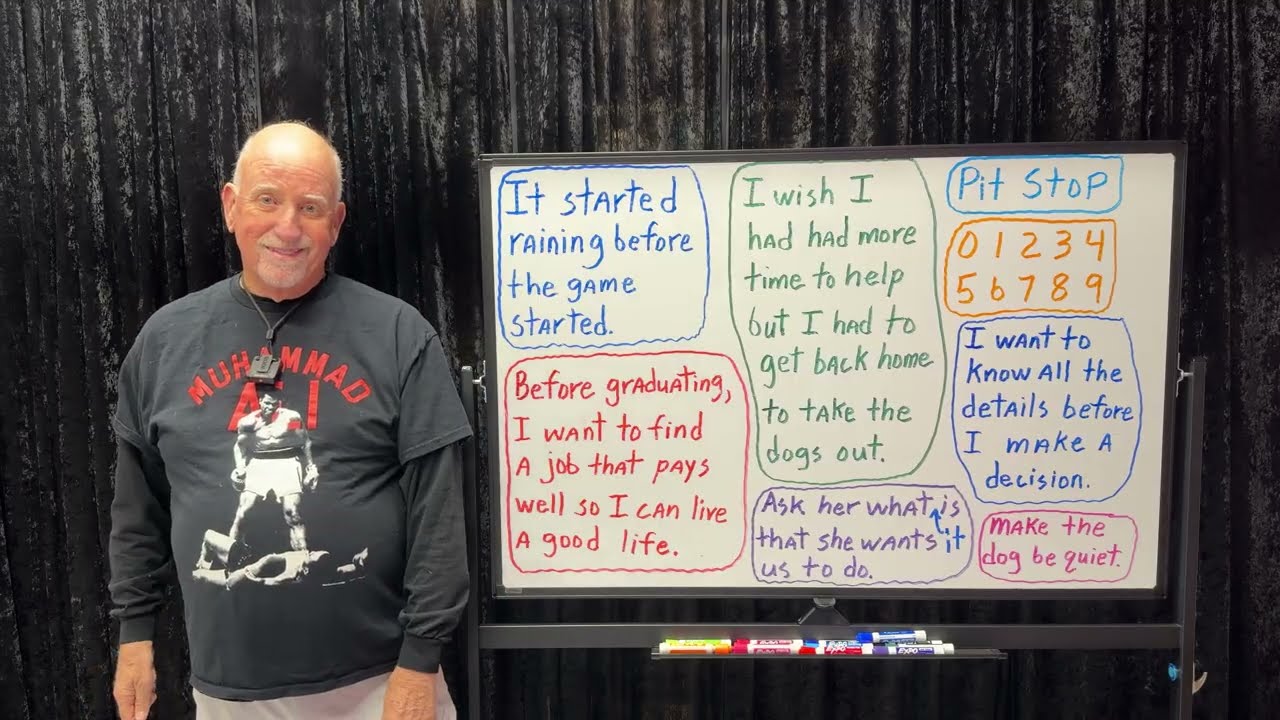 MUHAMMAD
ALI
It started
raining before
the game
started.
Before graduating,
I want to find
a job that pays
well so I can live
a good life.
I wish I
had had more
time to help
but I had to
get back home
to take the
dogs out.
Ask her what is
that she wants it
us to do.
Pit Stop
0 1 2 3 4
5 6 7 8 9
I want to
know all the
details before
I make a
decision.
make the
dog be quiet.
EXPO
EXPO